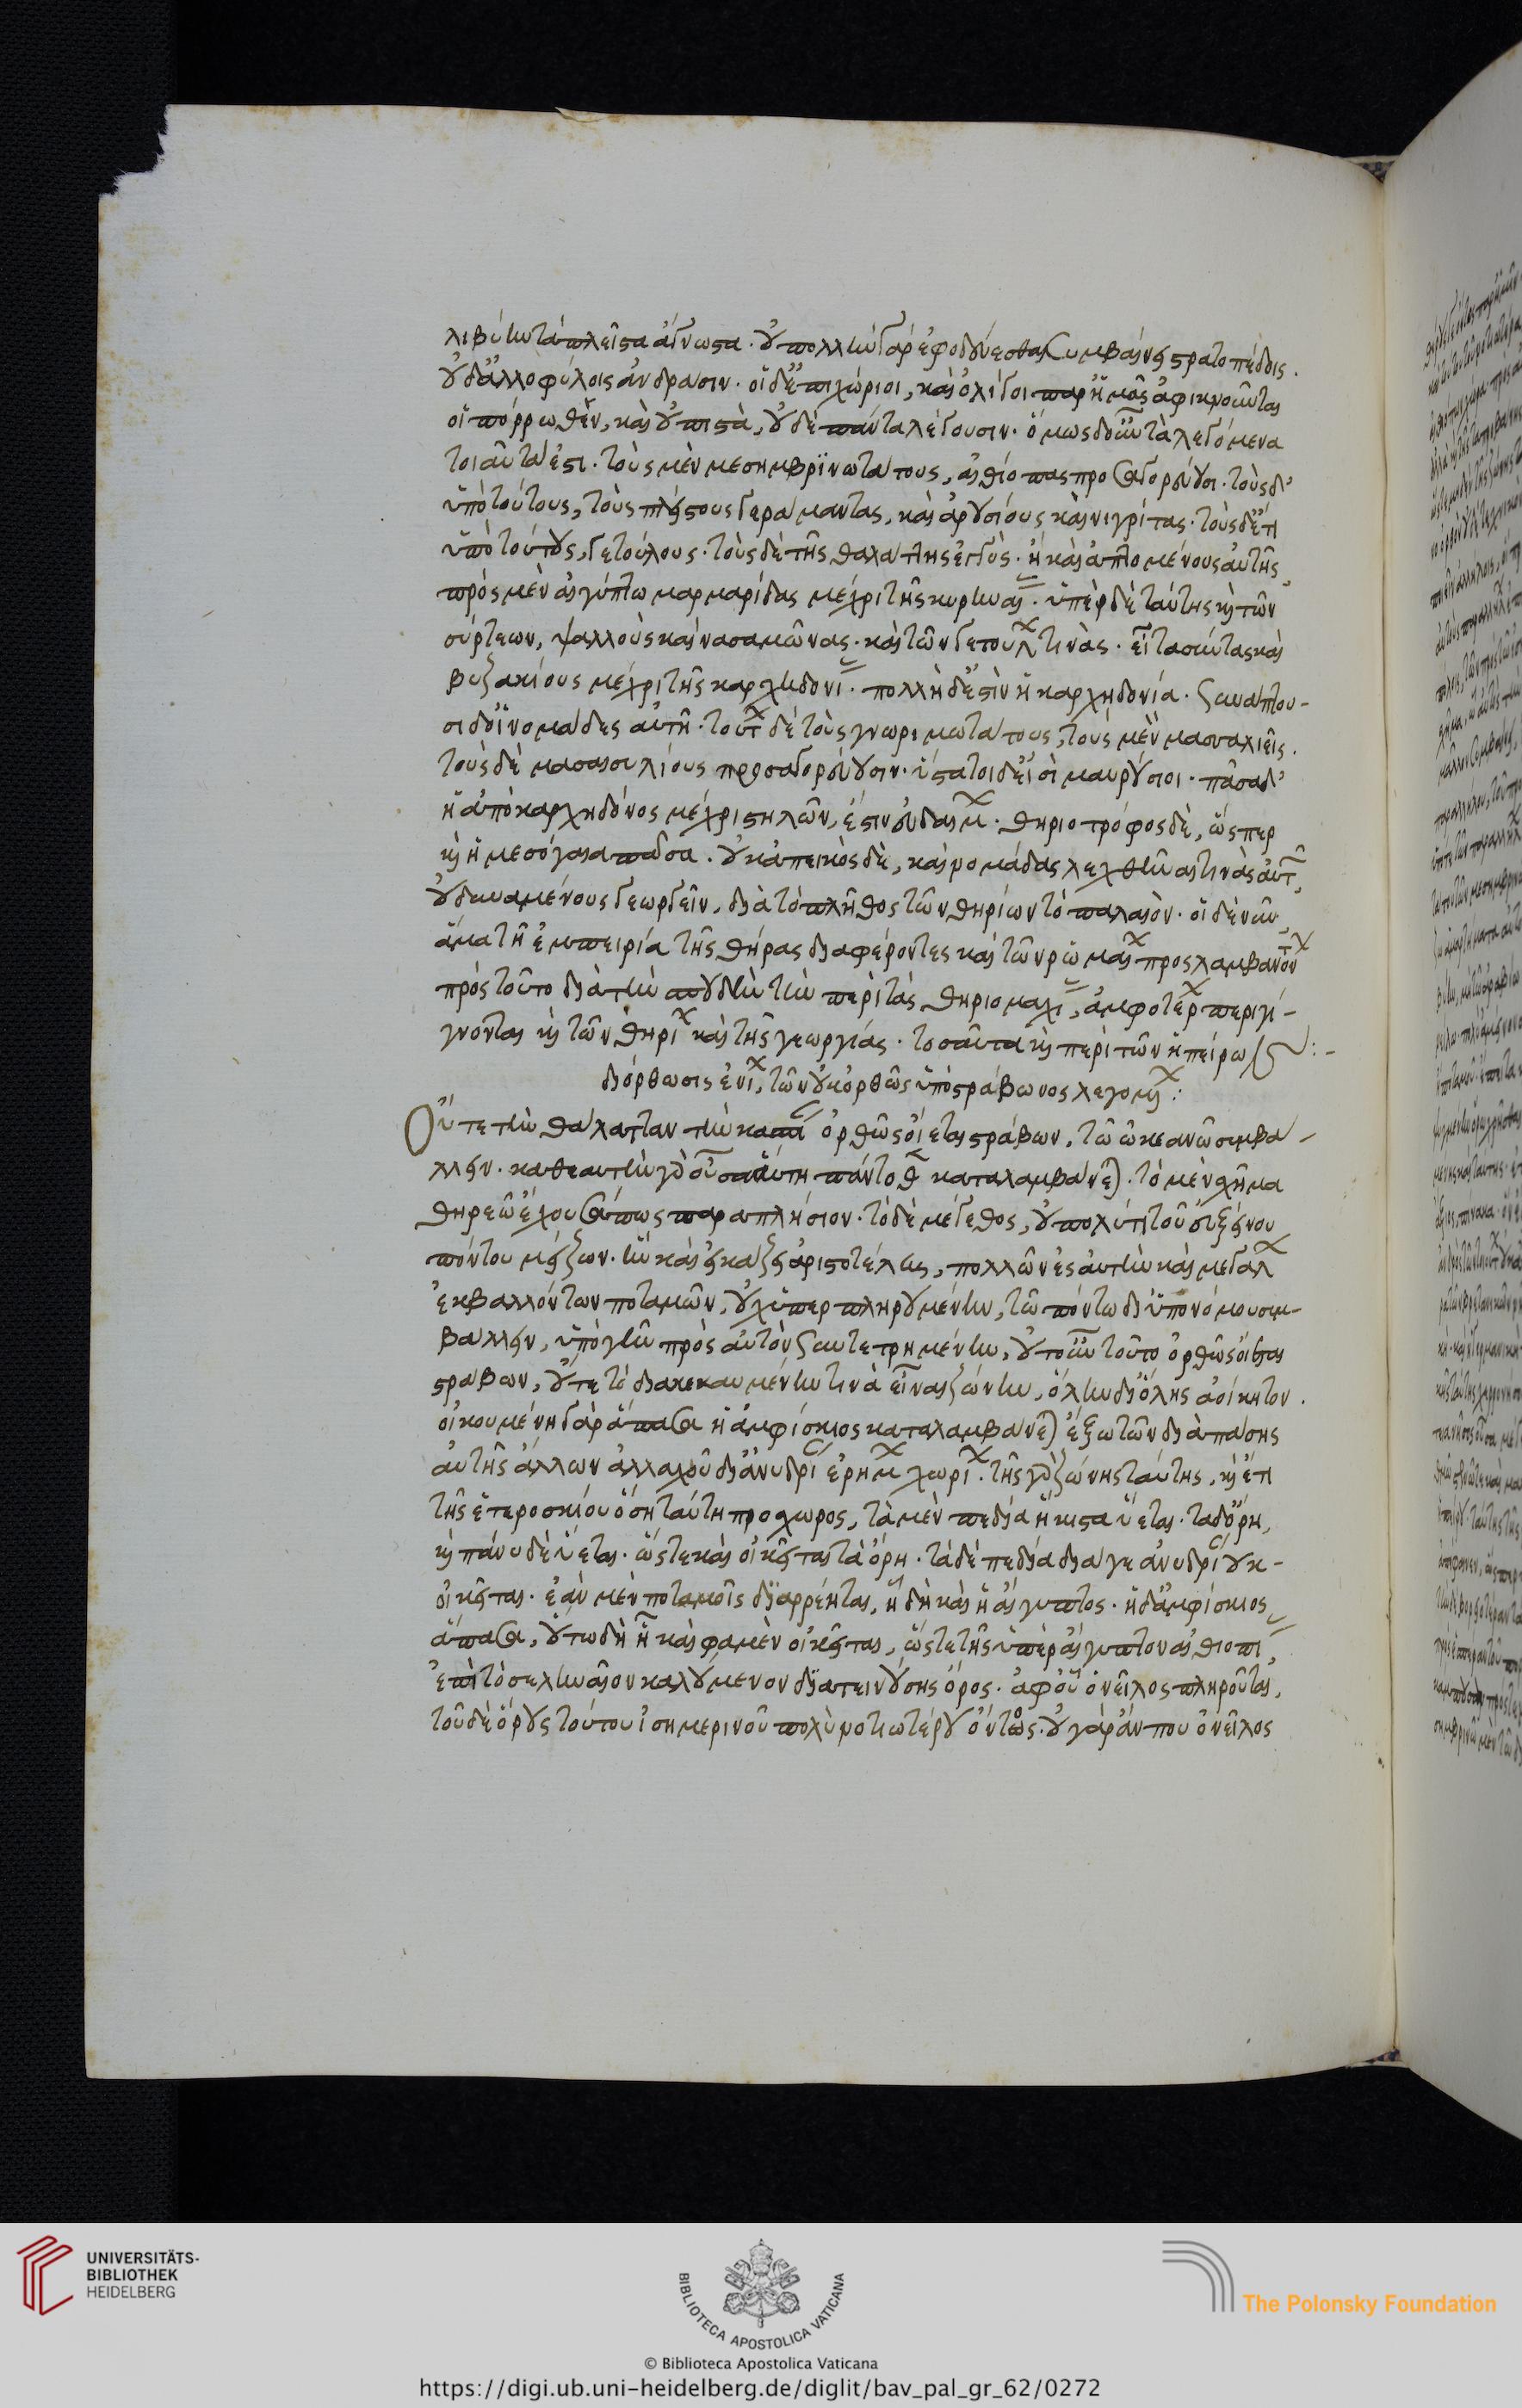 λιβύην τὰ πλεῖστα ἄγνωστα. οὐ πολλὴν γὰρ ἐφοδεύεσθαι συμβαίνει στρατοπέδοις.
οὐδ' ἀλλοφύλοις ἀνδράσιν. οἱ δ' ἐπιχώριοι, καὶ ὀλίγοι παρ' ἡμᾶς ἀφικνοῦνται
οἱ πόρρωθεν, καὶ οὐ πιστὰ, οὐδὲ πάντα λέγουσιν. ὅμως δ' οὖν τὰ λεγόμενα
τοιαῦτά ἐστι. τοὺς μὲν μεσημβρινωτάτους, αἰθίοπας προσαγορεύουσι. τοὺς δ'
ὑπὸ τούτους, τοὺς πλείστους γεράμαντας, καὶ ἀρουσίους καὶ νιγρίτας. τοὺς δ' ἔτι
ὑπὸ τούτους, γετούλους. τοὺς δὲ τῆς θαλάττης ἐγγὺς. ἢ καὶ ἁπτομένους αὐτῆς,
πρὸς μὲν αἰγύπτω μαρμαρίδας μέχρι τῆς κυρηναί. ὑπὲρ δὲ ταύτης καὶ τῶν
σύρτεων, ψαλλοὺς καὶ νασαμῶνας. καὶ τῶν γετούλ τινὰς. εἶτα σύντας καὶ
βυζακίους μέχρι τῆς καρχηδονί. πολλὴ δ' ἐστὶν ἡ καρχηδονία. συνάπτου-
σι δ' οἱ νομάδες αὐτῆ. τούτ δὲ τοὺς γνωριμωτάτους, τοὺς μὲν μασυλιεῖς.
τοὺς δὲ μασαισυλίους προσαγορεύουσιν. ὕστατοι δ' εἰσὶ μαυρούσιοι. πᾶσα δ'
ἡ ἀπὸ καρχηδόνος μέχρι στηλῶν, ἐστὶν εὐδαίμ. θηριοτρόφος δὲ, ὥσπερ
καὶ ἡ μεσόγαια πᾶσα. οὐκ ἀπεικὸς δὲ, καὶ νομάδας λεχθῆναι τινὰς αὐτ,
οὐ δυναμένους γεωργεῖν, διὰ τὸ πλῆθος τῶν θηρίων τὸ παλαιὸν. οἱ δὲ νῦν,
ἅμα τῆ ἐμπειρία τῆς θήρας διαφέροντες καὶ τῶν ῥωμαί προσλαμβανόντ
πρὸς τοῦτο διὰ τὴν σπουδὴν τὴν περὶ τὰς θηριομαχί, ἀμφοτέρ περιγί-
γνονται καὶ τῶν θηρί καὶ τῆς γεωργίας. τοσαῦτα καὶ περὶ τῶν ἠπείρω :-
διόρθωσις ἐνί, τῶν οὐκ ὀρθῶς ὑπὸ στράβωνος λεγομ:
Οὔτε τὴν θάλατταν τὴν κασπί ὀρθῶς οἴεται στράβων, τῶ ὠκεανῶ συμβά-
λλειν. καθ' ἑαυτὴν γὰρ οὖσα αὕτη πάντοθ καταλαμβάνε. τὸ μὲν σχῆμα
θηρεῶ ἔχουσά πως παραπλήσιον. τὸ δὲ μέγεθος, οὐ πολύ τι τοῦ εὐξείνου
πόντου μείζων. ἣν καὶ εἰκάζει ἀριστοτέλης, πολλῶν ἐς αὐτὴν καὶ μεγάλ
ἐκβαλλόντων ποταμῶν, οὐχ ὑπερπληρουμένην, τῶ πόντω δι' ὑπονόμου συμ-
βάλλειν, ὑπὸ γῆν πρὸς αὐτὸν συντετρημένην, οὔτ' οὖν τοῦτο ὀρθῶς οἴεται
στράβων, οὔτε τὸ διακεκαυμένην τινὰ εἶναι ζώνην, ὅλην δι' ὅλης ἀοίκητον.
οἰκουμένη γὰρ ἅπασα ἡ ἀμφίσκιος καταλαμβάνε ἔξω τῶν διὰ πάσης
αὐτῆς ἄλλων ἀλλαχοῦ δι' ἀνυδρί ἐρήμ χωρί. τῆς γὰρ ζώνης ταύτης, καὶ ἔτι
τῆς ἑτεροσκίου ὅση ταύτη πρόσχωρος, τὰ μὲν πεδία ἥκιστα ὕεται. τὰ δ' ὄρη,
καὶ πάνυ δὲ ὕεται. ὥστε καὶ οἰκεῖται τὰ ὄρη. τὰ δὲ πεδία διά γε ἀνυδρί οὐκ-
οἰκεῖται. ἐὰν μὲν ποταμοῖς διαρρέηται, ἤδη καὶ ἡ αἴγυπτος. ἡ δ' ἀμφίσκιος
ἅπασα, οὕτω δὴ ᾗ καὶ φαμὲν οἰκεῖται, ὥστε τῆς ὑπὲρ αἴγυπτον αἰθιοπί,
ἐπὶ τὸ σεληναῖον καλούμενον διατεινούσης ὄρος. ἀφ' οὗ ὁ νεῖλος πληροῦται,
τοῦ δὲ ὄρους τούτου ἰσημερινοῦ πολὺ νοτιωτέρου ὄντος. οὐ γὰρ ἄν που ὁ νεῖλος
UNIVERSITÄTS-
BIBLIOTHEK
HEIDELBERG
BIBLIOTECA APOSTOLICA VATICANA
The Polonsky Foundation
© Biblioteca Apostolica Vaticana
https://digi.ub.uni-heidelberg.de/diglit/bav_pal_gr_62/0272